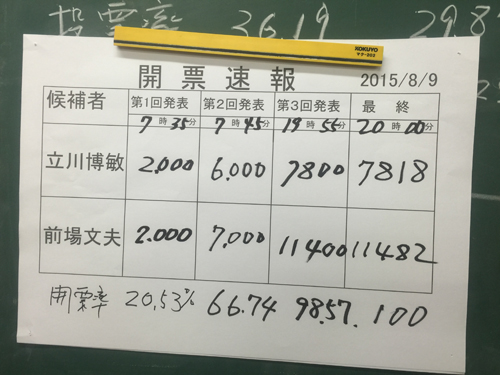 投票率 36.19 29.8
KOKUYO
開票速報 2015/8/9
候補者 第1回発表 第2回発表 第3回発表 最終
7時35分 7時45分 19時55分 20時00分
立川博敏 2.000 6.000 7800 7818
前場文夫 2.000 7.000 11400 11482
開票率 20.53% 66.74 98.57. 100